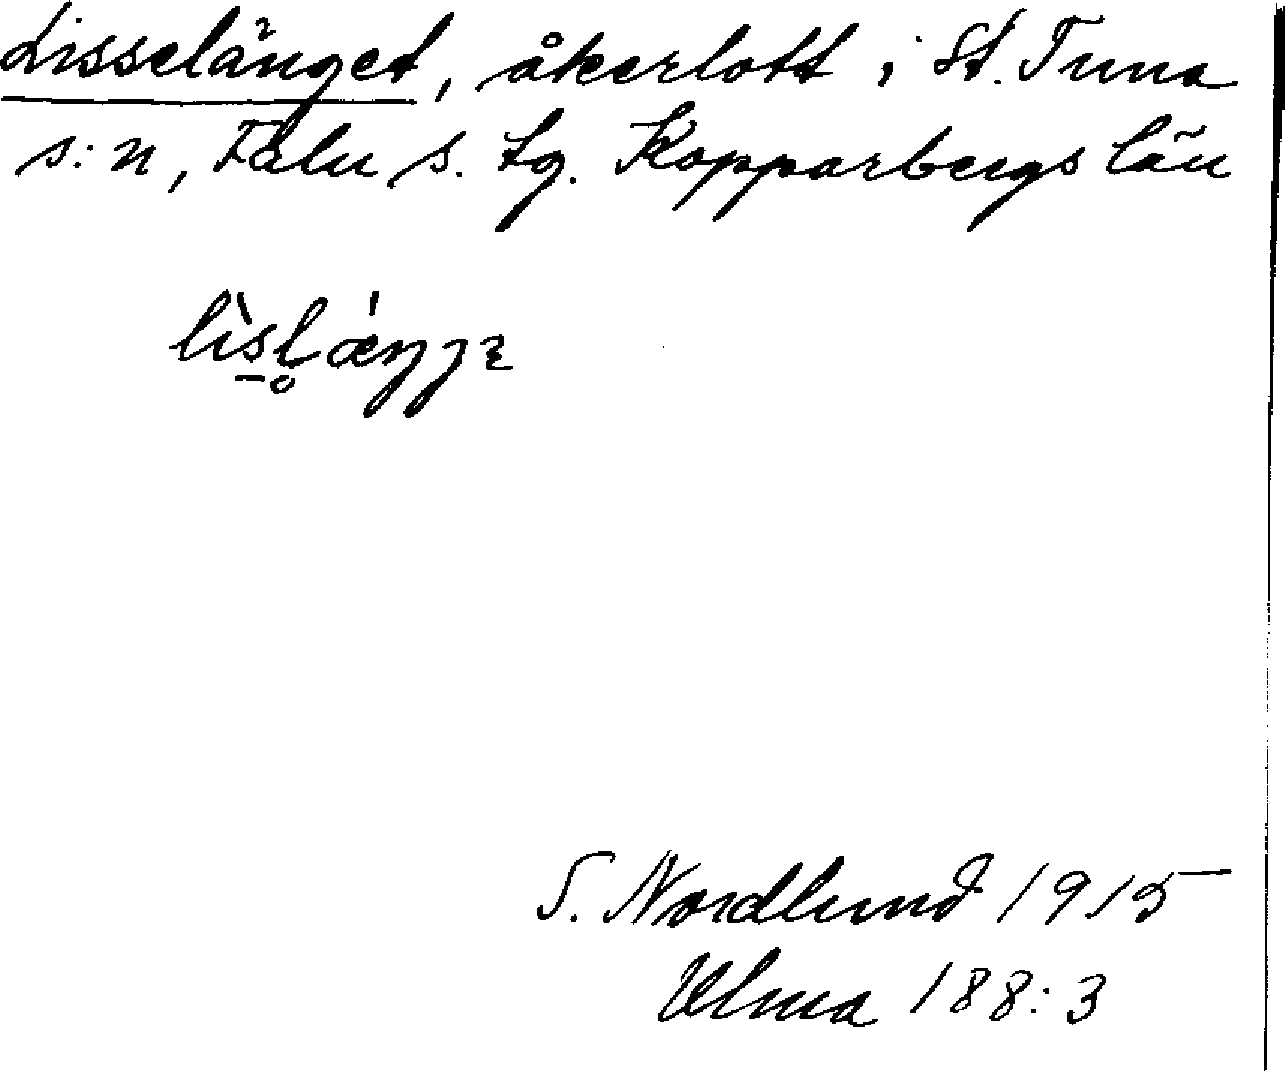 Lisselänget, åkerlott i St. Tuna
s:n, Falu s. tg. Kopparbergs län
S. Nordlund 1915
Ulma 188:3